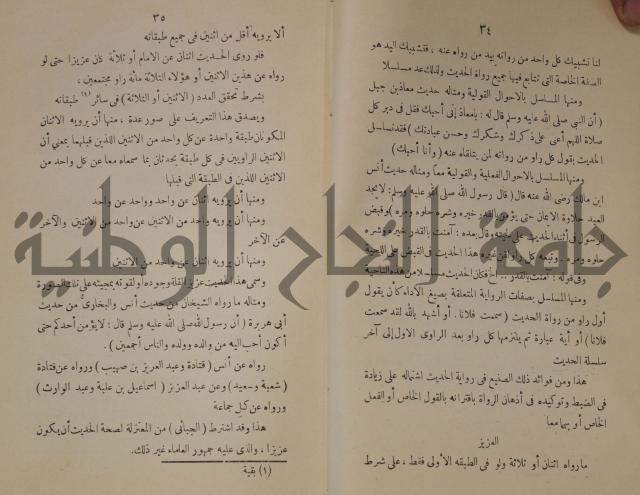 ٣٤
لنا تشبيك كل واحد من رواته بيد من رواه عنه ، فتشبيك اليد هو
الصفة الخاصة التى تتابع فيها جميع رواة الحديث ولذلك عد مسلسلا
ومنها المسلسل بالاحوال القولية ومثاله حديث معاذين جبل
( أن النبي صلى الله عليه وسلم قال له : يامعاذ إنى أحبك فقل فى دبر كل
صلاة اللهم أعنى على ذكرك وشكرك وحسن عبادتك ) فقد تسلسل
الحديث بقول كل راو من رواته لمن يتلقاه عنه ( وأنا أحبك )
ومنها المسلسل بالاحوال الفعلية والقولية معا ومثاله حديث أنس
ابن مالك رضى الله عنه قال ( قال رسول الله صلى الله عليه وسلم : لايجد
العبد حلاوة الايمان حتى يؤمن بالقدر خيره وشره حلوه ومره ) وقبض
الرسول فى أثناء الحديث على لحيته وقال بعده : آمنت بالقدر خيره وشره
حلوه ومره . وتبعه كل راو لمن غيره هذا الحديث فى القبض على اللحية
وفى قوله : آمنت بالقدر .. الخ فكان الحديث مسلسلا من هذه الناحية
ومنها المسلسل بصفات الرواية المتعلقة بصيغ الأداء كأن يقول
أول راو من رواة الحديث ( سمعت فلانا . أو أشهد بالله لقد سمعت
فلانا ) أو أية عبارة ثم يلتزمها كل راو بعد الراوى الاول إلى آخر
سلسلة الحديث
هذا ومن فوائد ذلك الصنيع فى رواية الحديث اشتماله على زيادة
فى الضبط وتوكيده فى أذهان الرواة باقترانه بالقول الخاص أو الفعل
الخاص أو بهما معا
العزيز
مارواه اثنان أو ثلاثة ولو فى الطبقه الأولى فقط ، على شرط
٣٥
ألا يرويه أقل من اثنين فى جميع طبقاته
فلو روى الحديث اثنان عن الامام أو ثلاثة كان عزيزا حتى لو
رواه عن هذين الاثنين أو هؤلاء الثلاثة مائة راو مجتمعين ،
بشرط تحقق العدد ( الاثنين أو الثلاثة ) فى سائر (١) طبقاته
ويصدق هذا التعريف على صور عدة ، منها أن يرويه الاثنان
المكونان طبقة واحدة عن كل واحد من الاثنين اللذين قبلهما بمعنى أن
الاثنين الراويين فى كل طبقة يحدثان بما سمعاه معا عن كل واحد من
الاثنين اللذين فى الطبقة التى قبلها
ومنها أن يرويه اثنان عن واحد وواحد عن واحد
ومنها أن يرويه واحد من الاثنين عن واحد من الاثنين والآخر
عن الآخر
ومنها أن يرويه اثنان عن واحد من الاثنين
وسمى هذا الحديث عزيزا لقلة وجوده أو لقوته بمجيئه على تلك الصورة
ومثاله مارواه الشيخان من حديث أنس والبخارى من حديث
أبى هريرة ( أن رسول الله صلى الله عليه وسلم قال : لايؤمن أحدكم حتى
أكون أحب اليه من والده وولده والناس أجمعين ) .
رواه عن أنس ( قتادة وعبد العزيز بن صهيب ) ورواه عن قتادة
( شعبة وسعيد ) وعن عبد العزيز ( اسماعيل بن علية وعبد الوارث )
ورواه عن كل جماعة
هذا وقد اشترط ( الجبائى ) من المعتزلة لصحة الحديث أن يكون
عزيزا ، والذى عليه جمهور العلماء غير ذلك.
(١) بقية
جامعة النجاح الوطنية